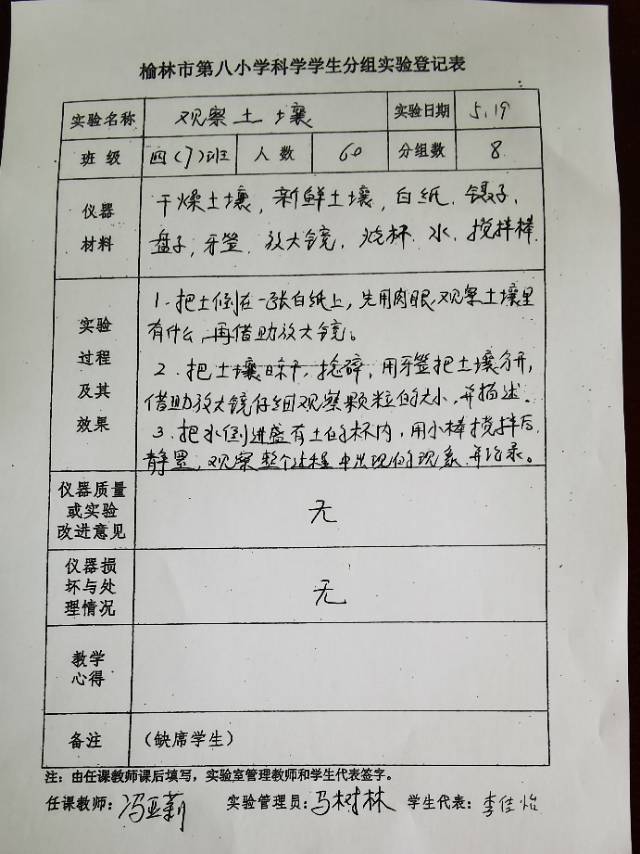 榆林市第八小学科学学生分组实验登记表
实验名称 观察土壤 实验日期 5.19
班级 四(7)班 人数 60 分组数 8
仪器材料 干燥土壤, 新鲜土壤, 白纸, 镊子,
盘子, 牙签, 放大镜, 烧杯, 水, 搅拌棒
实验过程及其效果 1. 把土倒在一张白纸上, 先用肉眼观察土壤里
有什么, 再借助放大镜。
2. 把土壤晾干, 捻碎, 用牙签把土壤分开,
借助放大镜仔细观察颗粒的大小, 并描述.
3. 把水倒进盛有土的杯内, 用小棒搅拌后,
静置, 观察整个过程中出现的现象, 并记录。
仪器质量或实验改进意见 无
仪器损坏与处理情况 无
教学心得
备注 (缺席学生)
注: 由任课教师课后填写, 实验室管理教师和学生代表签字。
任课教师: 冯亚莉 实验管理员: 马树林 学生代表: 李佳怡